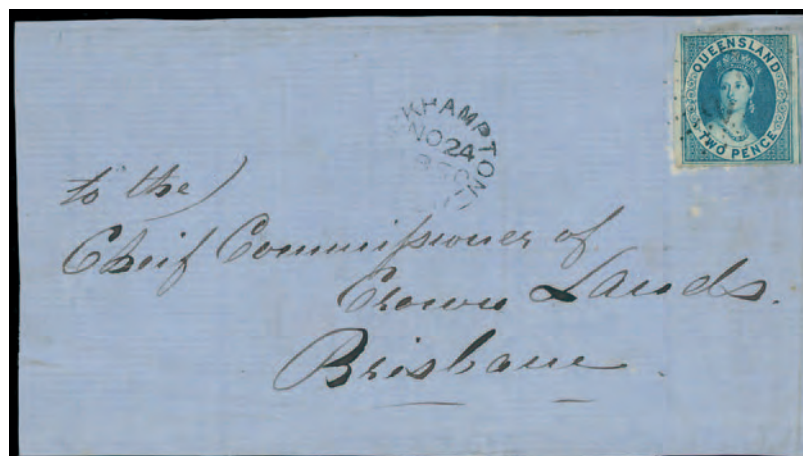 QUEENSLAND
TWO PENCE
KHAMPTON
NO 24
to the
Cheif Commissioner of
Crown Lands.
Brisbane.